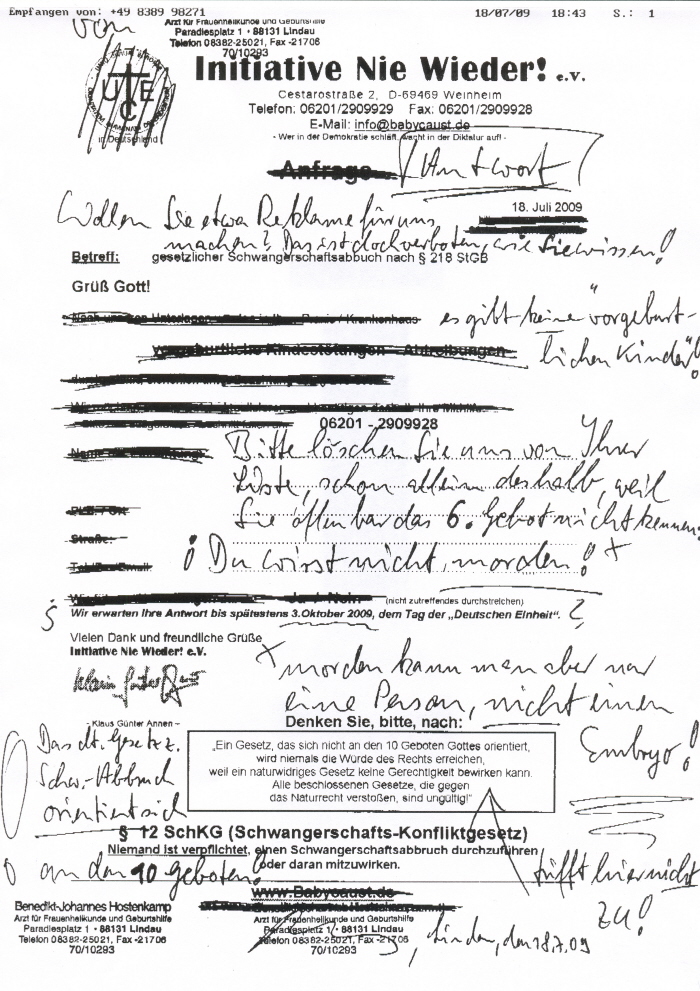 Empfangen von: +49 8389 98271 18/07/09 18:43 S.: 1
von
Arzt für Frauenheilkunde und Geburtshilfe
Paradiesplatz 1 • 88131 Lindau
Telefon 08382-25021, Fax -21706
70/10293
UTEC
in Deutschland
Initiative Nie Wieder! e.v.
Cestarostraße 2, D-69469 Weinheim
Telefon: 06201/2909929 Fax: 06201/2909928
E-Mail: info@babycaust.de
- Wer in der Demokratie schläft, wacht in der Diktatur auf! -
Anfrage Antwort
18. Juli 2009
Wollen Sie etwa Reklame für uns
machen? Das ist doch verboten, wie Sie wissen!
Betreff: gesetzlicher Schwangerschaftsabbuch nach § 218 StGB
Grüß Gott!
es gibt keine "vorgeburt-
vorgeburtliche Kindestötungen - Abtreibungen
lichen Kinder"!
06201 - 2909928
Bitte löschen Sie uns von Ihrer
Liste, schon allein deshalb, weil
PLZ / Ort
Sie offenbar das 6. Gebot nicht kennen:
Straße:
Du wirst nicht morden! +
Tel/Fax/Email:
Ja / Nein (nicht zutreffendes durchstreichen)
Wir erwarten Ihre Antwort bis spätestens 3.Oktober 2009, dem Tag der „Deutschen Einheit“. ?
Vielen Dank und freundliche Grüße
Initiative Nie Wieder! e.V.
+ morden kann man aber nur
eine Person, nicht einen
Embryo!
- Klaus Günter Annen -
Denken Sie, bitte, nach:
„Ein Gesetz, das sich nicht an den 10 Geboten Gottes orientiert,
wird niemals die Würde des Rechts erreichen,
weil ein naturwidriges Gesetz keine Gerechtigkeit bewirken kann.
Alle beschlossenen Gesetze, die gegen
das Naturrecht verstoßen, sind ungültig!“
Das dt. Gesetz z.
Schw.-Abbruch
orientiert sich
an den 10 Geboten!
§ 12 SchKG (Schwangerschafts-Konfliktgesetz)
Niemand ist verpflichtet, einen Schwangerschaftsabbruch durchzuführen
oder daran mitzuwirken.
trifft hier nicht
zu!
www.Babycaust.de
Benedikt-Johannes Hostenkamp
Arzt für Frauenheilkunde und Geburtshilfe
Paradiesplatz 1 • 88131 Lindau
Telefon 08382-25021, Fax -21706
70/10293
Arzt für Frauenheilkunde und Geburtshilfe
Paradiesplatz 1 • 88131 Lindau
Telefon 08382-25021, Fax -21706
70/10293
, Lindau, den 18.7.09